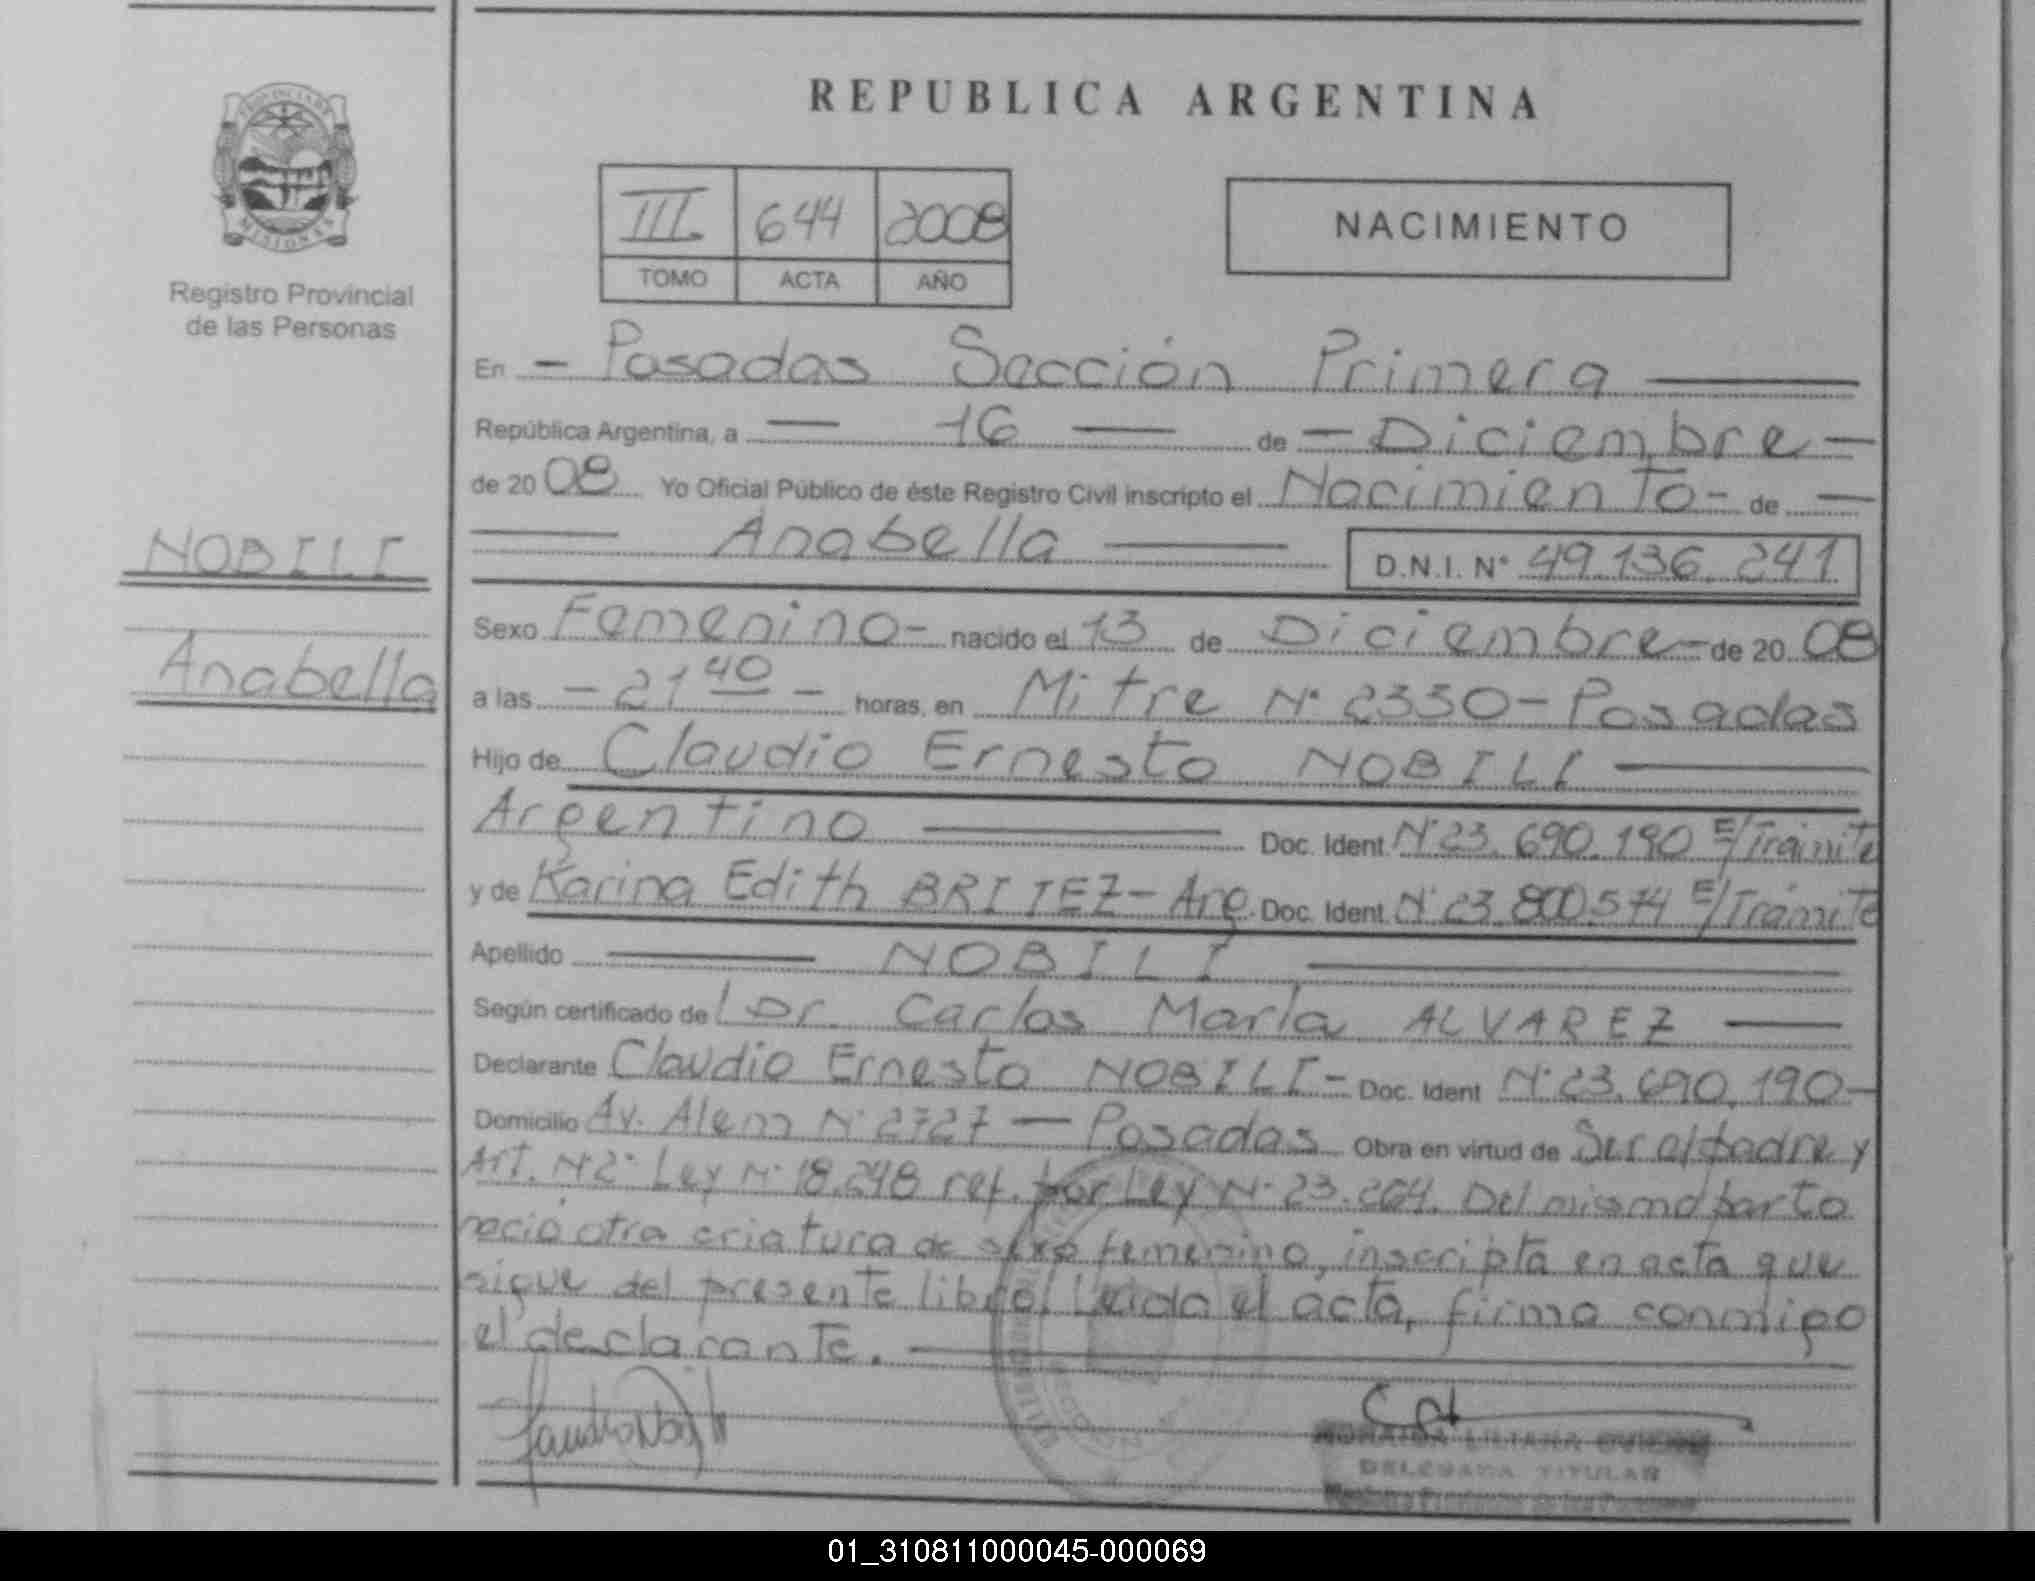 REPUBLICA ARGENTINA
PROVINCIA DE
MISIONES
Registro Provincial
de las Personas
III 644 2008
TOMO ACTA AÑO
NACIMIENTO
En - Posadas Sección Primera
República Argentina, a — 16 — de - Diciembre -
de 2008 Yo Oficial Público de éste Registro Civil inscripto el Nacimiento - de —
— Anabella — D.N.I. N° 49.136.241
NOBILI
Anabella
Sexo Femenino - nacido el 13 de Diciembre - de 2008
a las - 21 40 - horas, en Mitre N° 2350 - Posadas
Hijo de Claudio Ernesto NOBILI —
Argentino — Doc. Ident. N° 23.690.190 E/Trámite
y de Karina Edith BRITEZ - Arg. Doc. Ident. N° 23.800.574 E/Trámite
Apellido — NOBILI —
Según certificado de Dr. Carlos María ALVAREZ —
Declarante Claudio Ernesto NOBILI - Doc. Ident N° 23.690.190 -
Domicilio Av. Alem N° 2727 — Posadas Obra en virtud de Ser el padre y
Art. N° 2° Ley N° 18.248 ref. por Ley N° 23.264. Del mismo parto
nació otra criatura de sexo femenino, inscripta en acta que
sigue del presente libro. Leida el acta, firma conmigo
el declarante. —
LILIANA
DELEGADA TITULAR
01_310811000045-000069